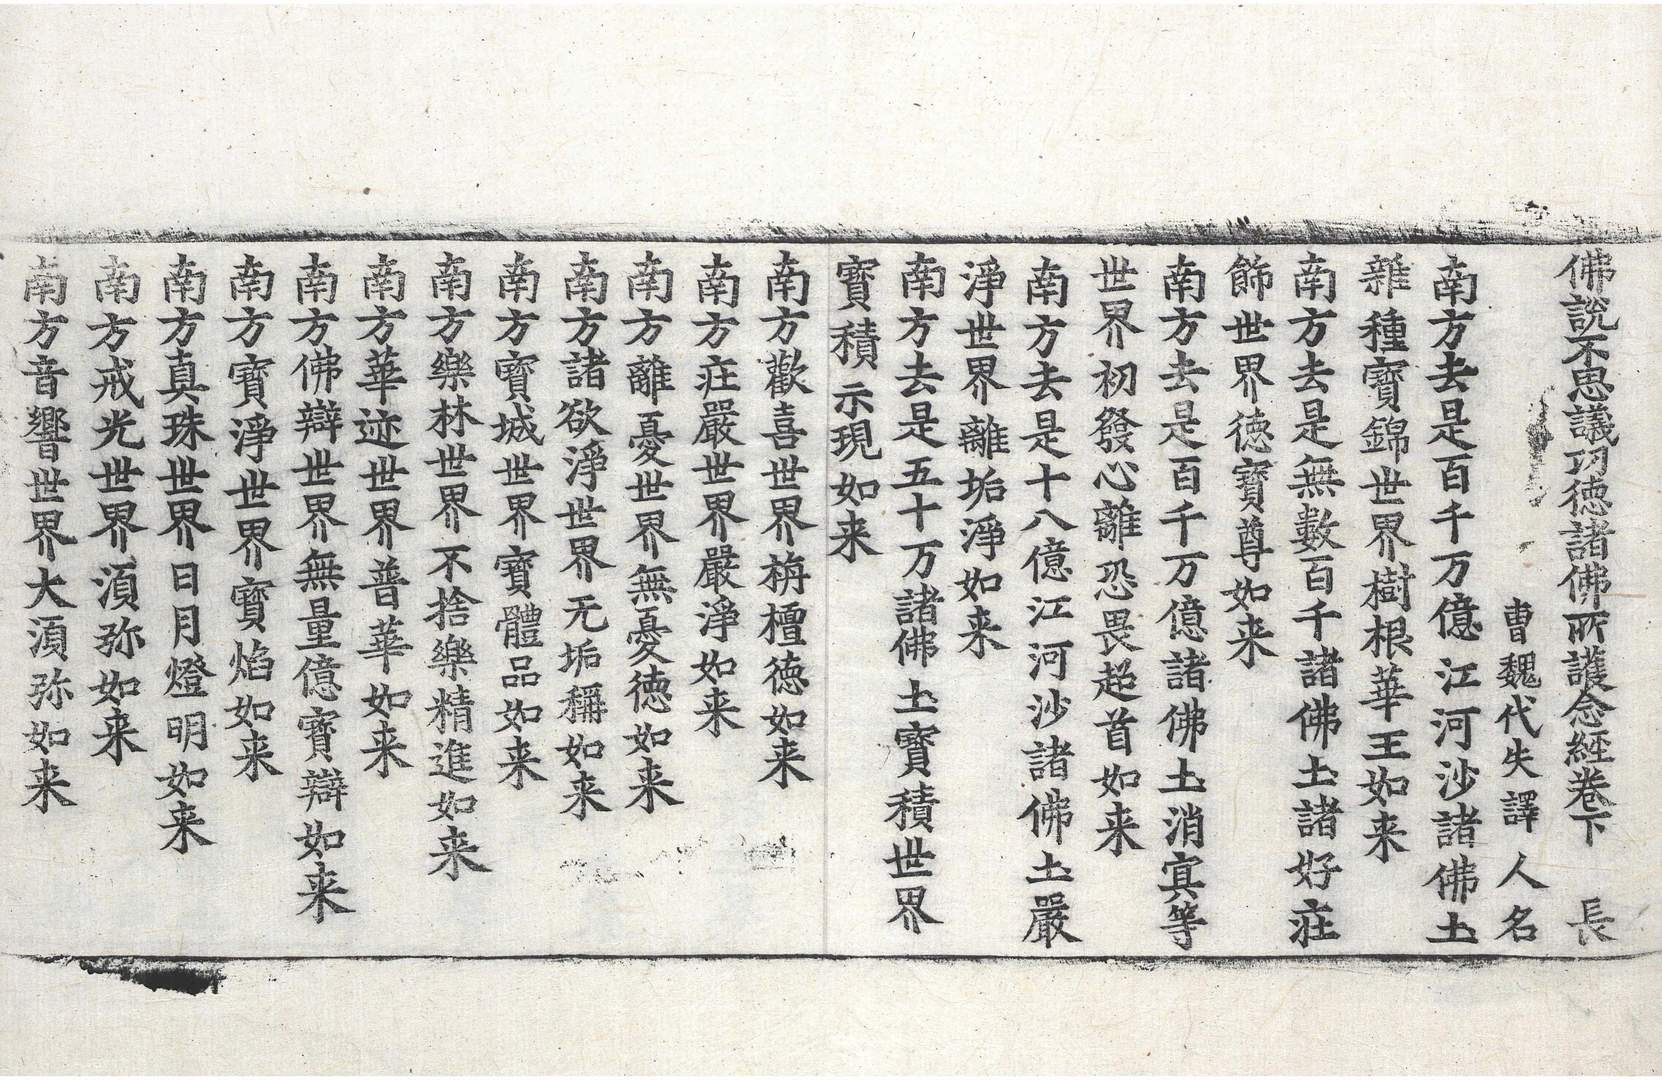 佛說不思議功徳諸佛所護念經卷下　長
曹魏代失譯人名
南方去是百千万億江河沙諸佛土
雜種寶錦世界樹根華王如来
南方去是無數百千諸佛土諸好莊
飾世界徳寶尊如来
南方去是百千万億諸佛土消冥等
世界初發心離恐畏超首如来
南方去是十八億江河沙諸佛土嚴
淨世界離垢淨如来
南方去是五十万諸佛土寶積世界
寶積示現如来
南方歡喜世界栴檀徳如来
南方莊嚴世界嚴淨如来
南方離憂世界無憂徳如来
南方諸欲淨世界无垢稱如来
南方寶城世界寶體品如来
南方樂林世界不捨樂精進如来
南方華迹世界普華如来
南方佛辯世界無量億寶辯如来
南方寶淨世界寶焰如来
南方真珠世界日月燈明如来
南方戒光世界湏弥如来
南方音響世界大湏弥如来